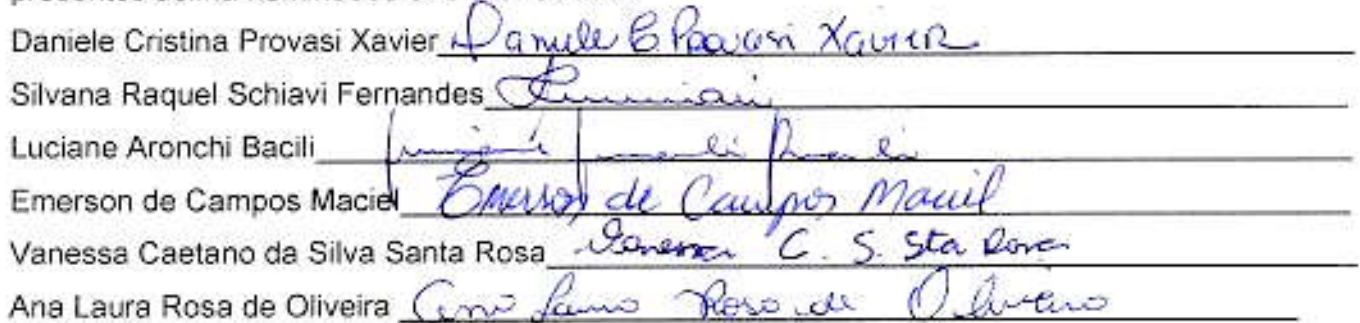 Daniele Cristina Provasi Xavier Daniele C Provasi Xavier
Silvana Raquel Schiavi Fernandes
Luciane Aronchi Bacili
Emerson de Campos Maciel Emerson de Campos Maciel
Vanessa Caetano da Silva Santa Rosa Vanessa C. S. Sta Rosa
Ana Laura Rosa de Oliveira Ana Laura Rosa de Oliveira